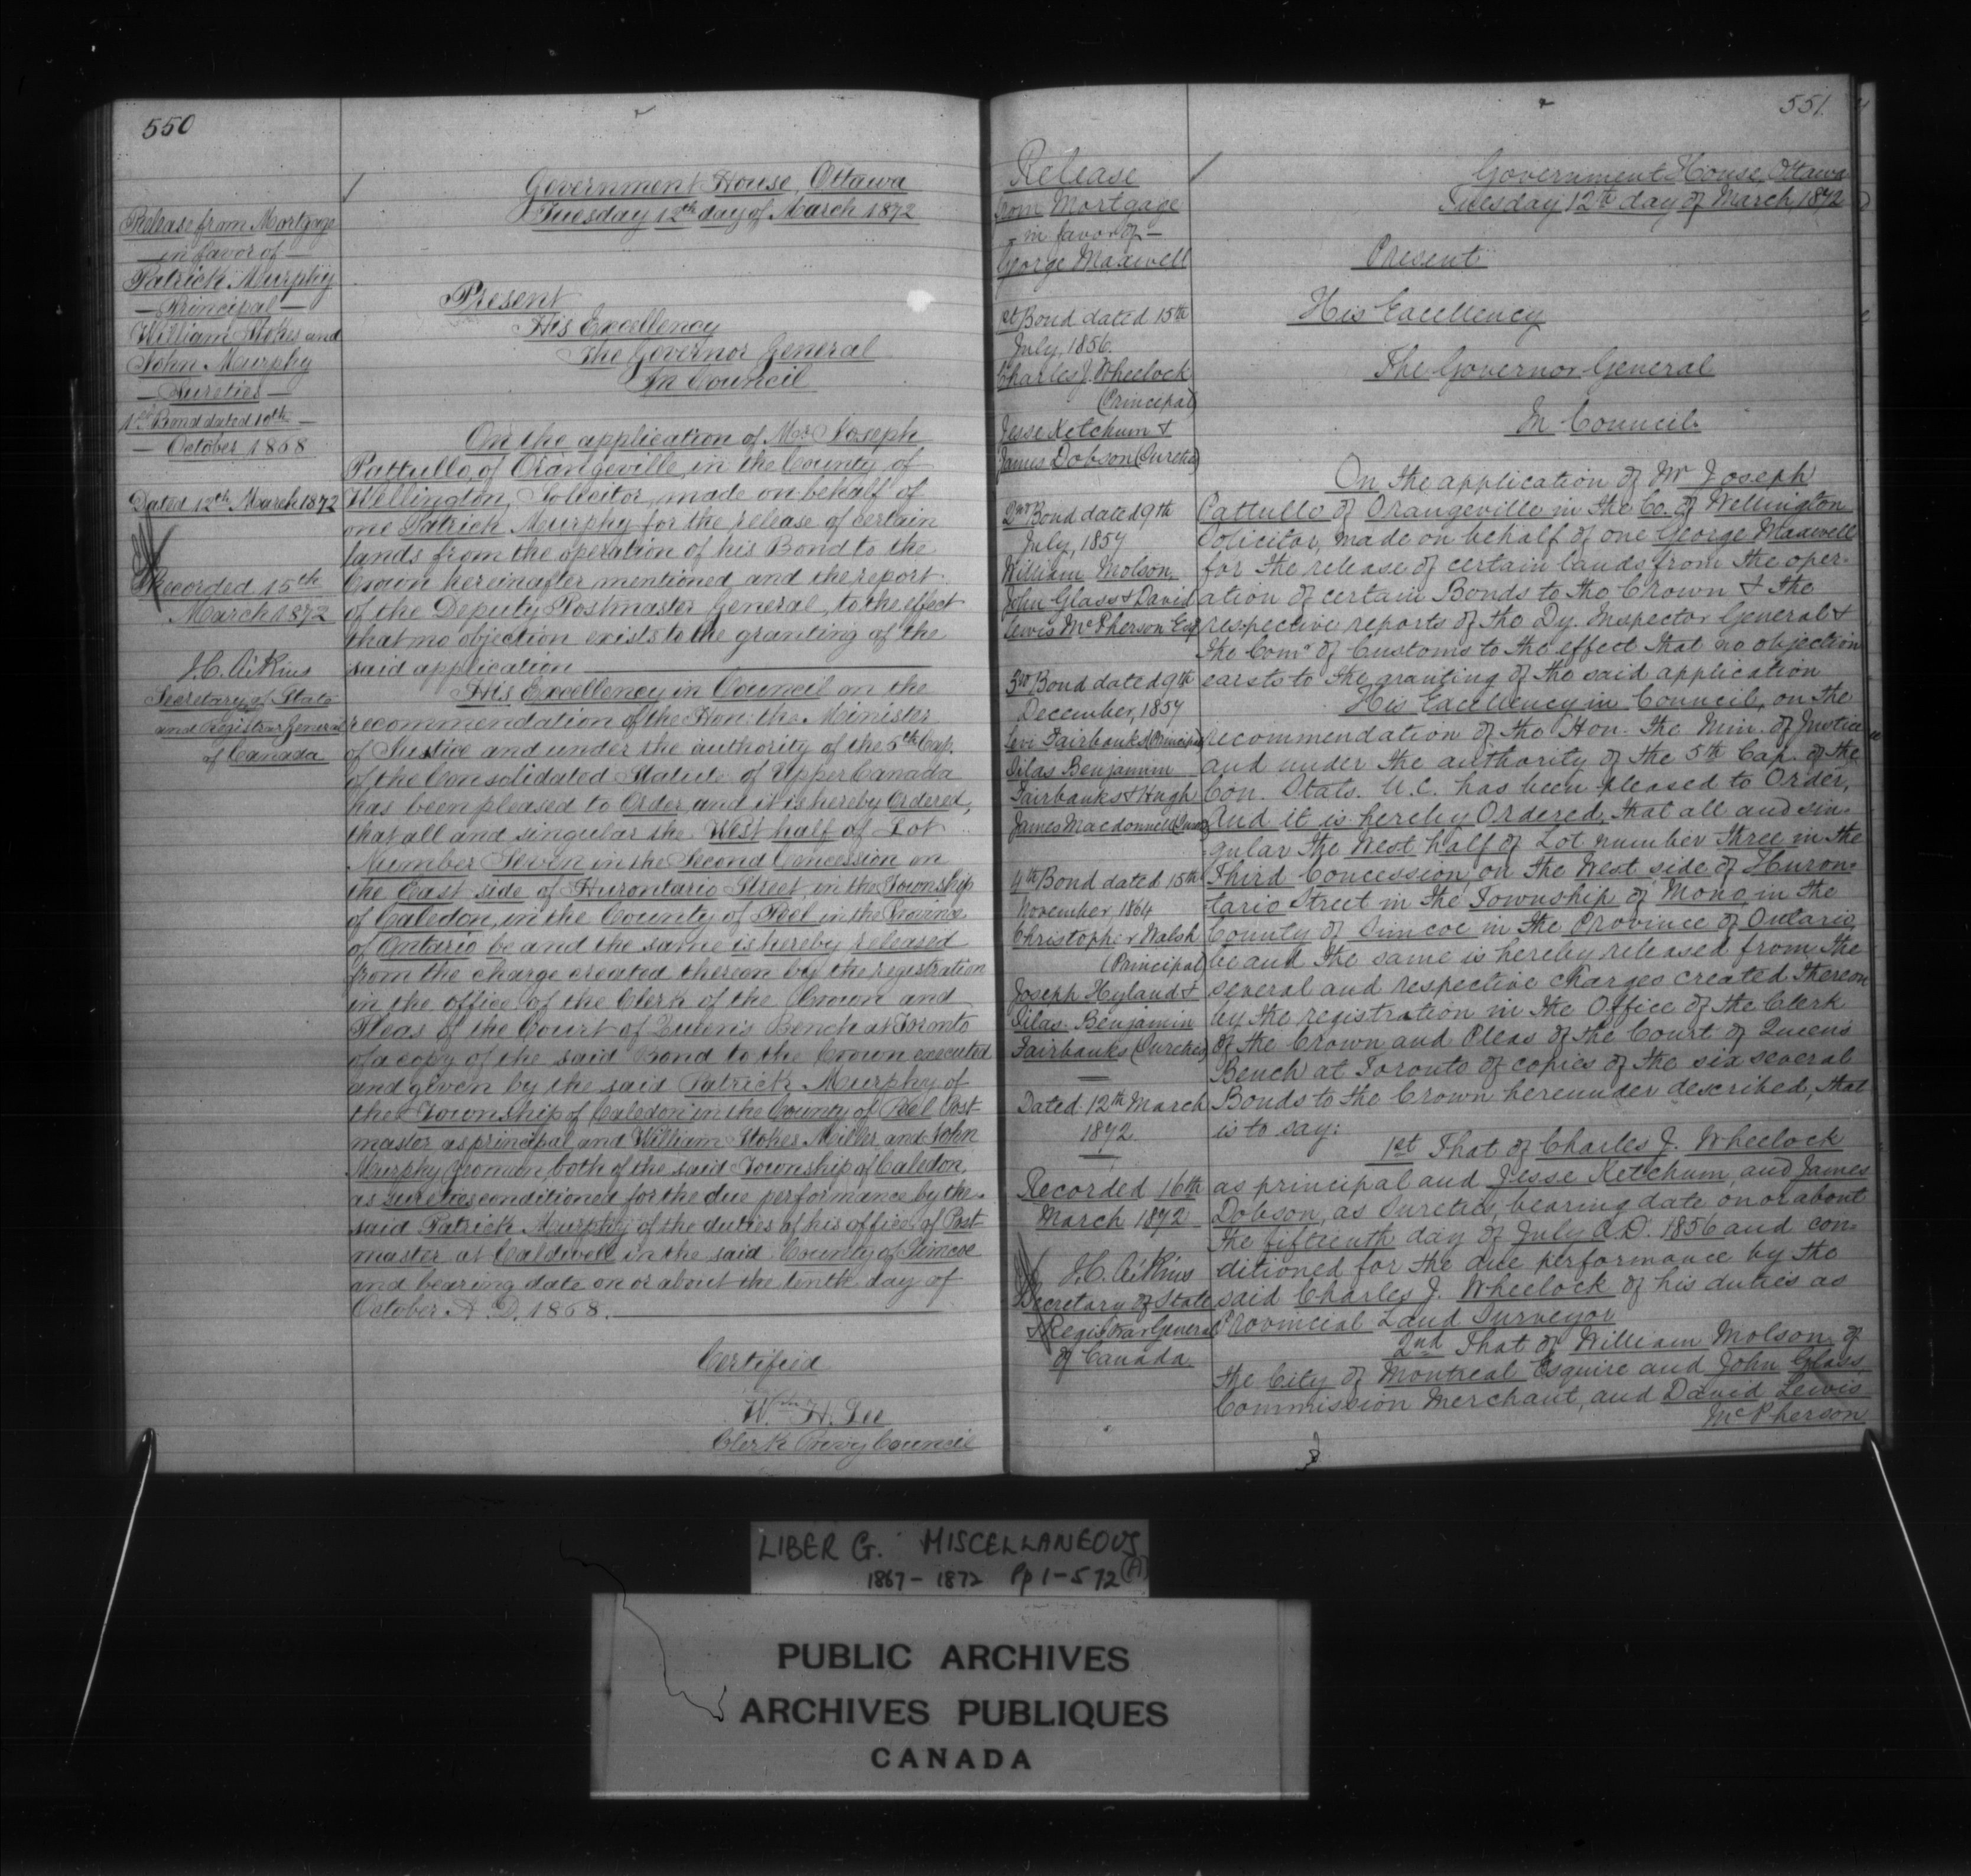 550
Release from Mortgage
— in favor of —
Patrick Murphy
— Principal —
William Stokes and
John Murphy
— Sureties —
1st Bond dated 10th —
— October 1868
Dated 12th March 1872
Recorded 15th
March 1872
J.C. Aikins
Secretary of State
and Registrar General
of Canada
Government House, Ottawa
Tuesday 12th day of March 1872
Present
His Excellency
The Governor General
In Council
On the application of Mr. Joseph
Pattullo, of Orangeville, in the County of
Wellington, Solicitor, made on behalf of
one Patrick Murphy for the release of certain
lands from the operation of his Bond to the
Crown hereinafter mentioned and the report
of the Deputy Postmaster General, to the effect
that no objection exists to the granting of the
said application
His Excellency in Council on the
recommendation of the Hon: the Minister
of Justice and under the authority of the 5th Cap.
of the Consolidated Statute of Upper Canada
has been pleased to Order, and it is hereby Ordered,
that all and singular the West half of Lot
Number Seven in the Second Concession on
the East side of Hurontario Street, in the Township
of Caledon, in the County of Peel in the Province
of Ontario be and the same is hereby released
from the charge created thereon by the registration
in the office of the Clerk of the Crown and
Pleas of the Court of Queen's Bench at Toronto
of a copy of the said Bond to the Crown executed
and given by the said Patrick Murphy of
the Township of Caledon in the County of Peel Post
master as principal and William Stokes Miller and John
Murphy Yeoman, both of the said Township of Caledon,
as Sureties conditioned for the due performance by the
said Patrick Murphy of the duties of his office of Post
master at Caldwell in the said County of Simcoe
and bearing date on or about the tenth day of
October A.D. 1868.
Certified
Wm. H. Lee
Clerk Privy Council
551.
Release
from Mortgage
— in favor of —
George Maxwell
1st Bond dated 15th
July, 1856.
Charles J. Wheelock
(Principal)
Jesse Ketchum &
James Dobson (Sureties)
2nd Bond dated 9th
July, 1857
William Molson,
John Glass & David
Lewis McPherson Esq
3rd Bond dated 9th
December, 1857
Levi Fairbanks (Principal)
Silas Benjamin
Fairbanks & Hugh
James Macdonnell
4th Bond dated 15th
November 1864
Christopher Walsh
(Principal)
Joseph Hyland &
Silas Benjamin
Fairbanks (Sureties)
Dated 12th March
1872
Recorded 16th
March 1872
J.C. Aikins
Secretary of State
& Registrar General
of Canada
Government House, Ottawa
Tuesday 12th day of March, 1872
Present
His Excellency
The Governor General
In Council.
On the application of Mr Joseph
Pattullo of Orangeville in the Co. of Wellington
Solicitor, made on behalf of one George Maxwell
for the release of certain lands from the oper-
ation of certain Bonds to the Crown & the
respective reports of the Dy. Inspector General &
the Comr of Customs to the effect that no objection
exists to the granting of the said application
His Excellency in Council, on the
recommendation of the Hon. the Min. of Justice
and under the authority of the 5th Cap. of the
Con. Stats. U.C. has been pleased to Order,
And it is hereby Ordered, that all and sin-
gular the West half of Lot number Three in the
Third Concession on the West side of Huron-
tario Street in the Township of Mono, in the
County of Simcoe in the Province of Ontario,
be and the same is hereby released from the
several and respective charges created thereon
by the registration in the Office of the Clerk
of the Crown and Pleas of the Court of Queen's
Bench at Toronto of copies of the six several
Bonds to the Crown hereunder described, that
is to say:
1st That of Charles J. Wheelock
as principal and Jesse Ketchum, and James
Dobson, as Sureties, bearing date on or about
the fifteenth day of July A.D. 1856 and con-
ditioned for the due performance by the
said Charles J. Wheelock of his duties as
Provincial Land Surveyor
2nd That of William Molson of
the City of Montreal Esquire and John Glass
Commission Merchant, and David Lewis
McPherson
LIBER G. MISCELLANEOUS
1867 - 1872 Pp 1-572 (A)
PUBLIC ARCHIVES
ARCHIVES PUBLIQUES
CANADA